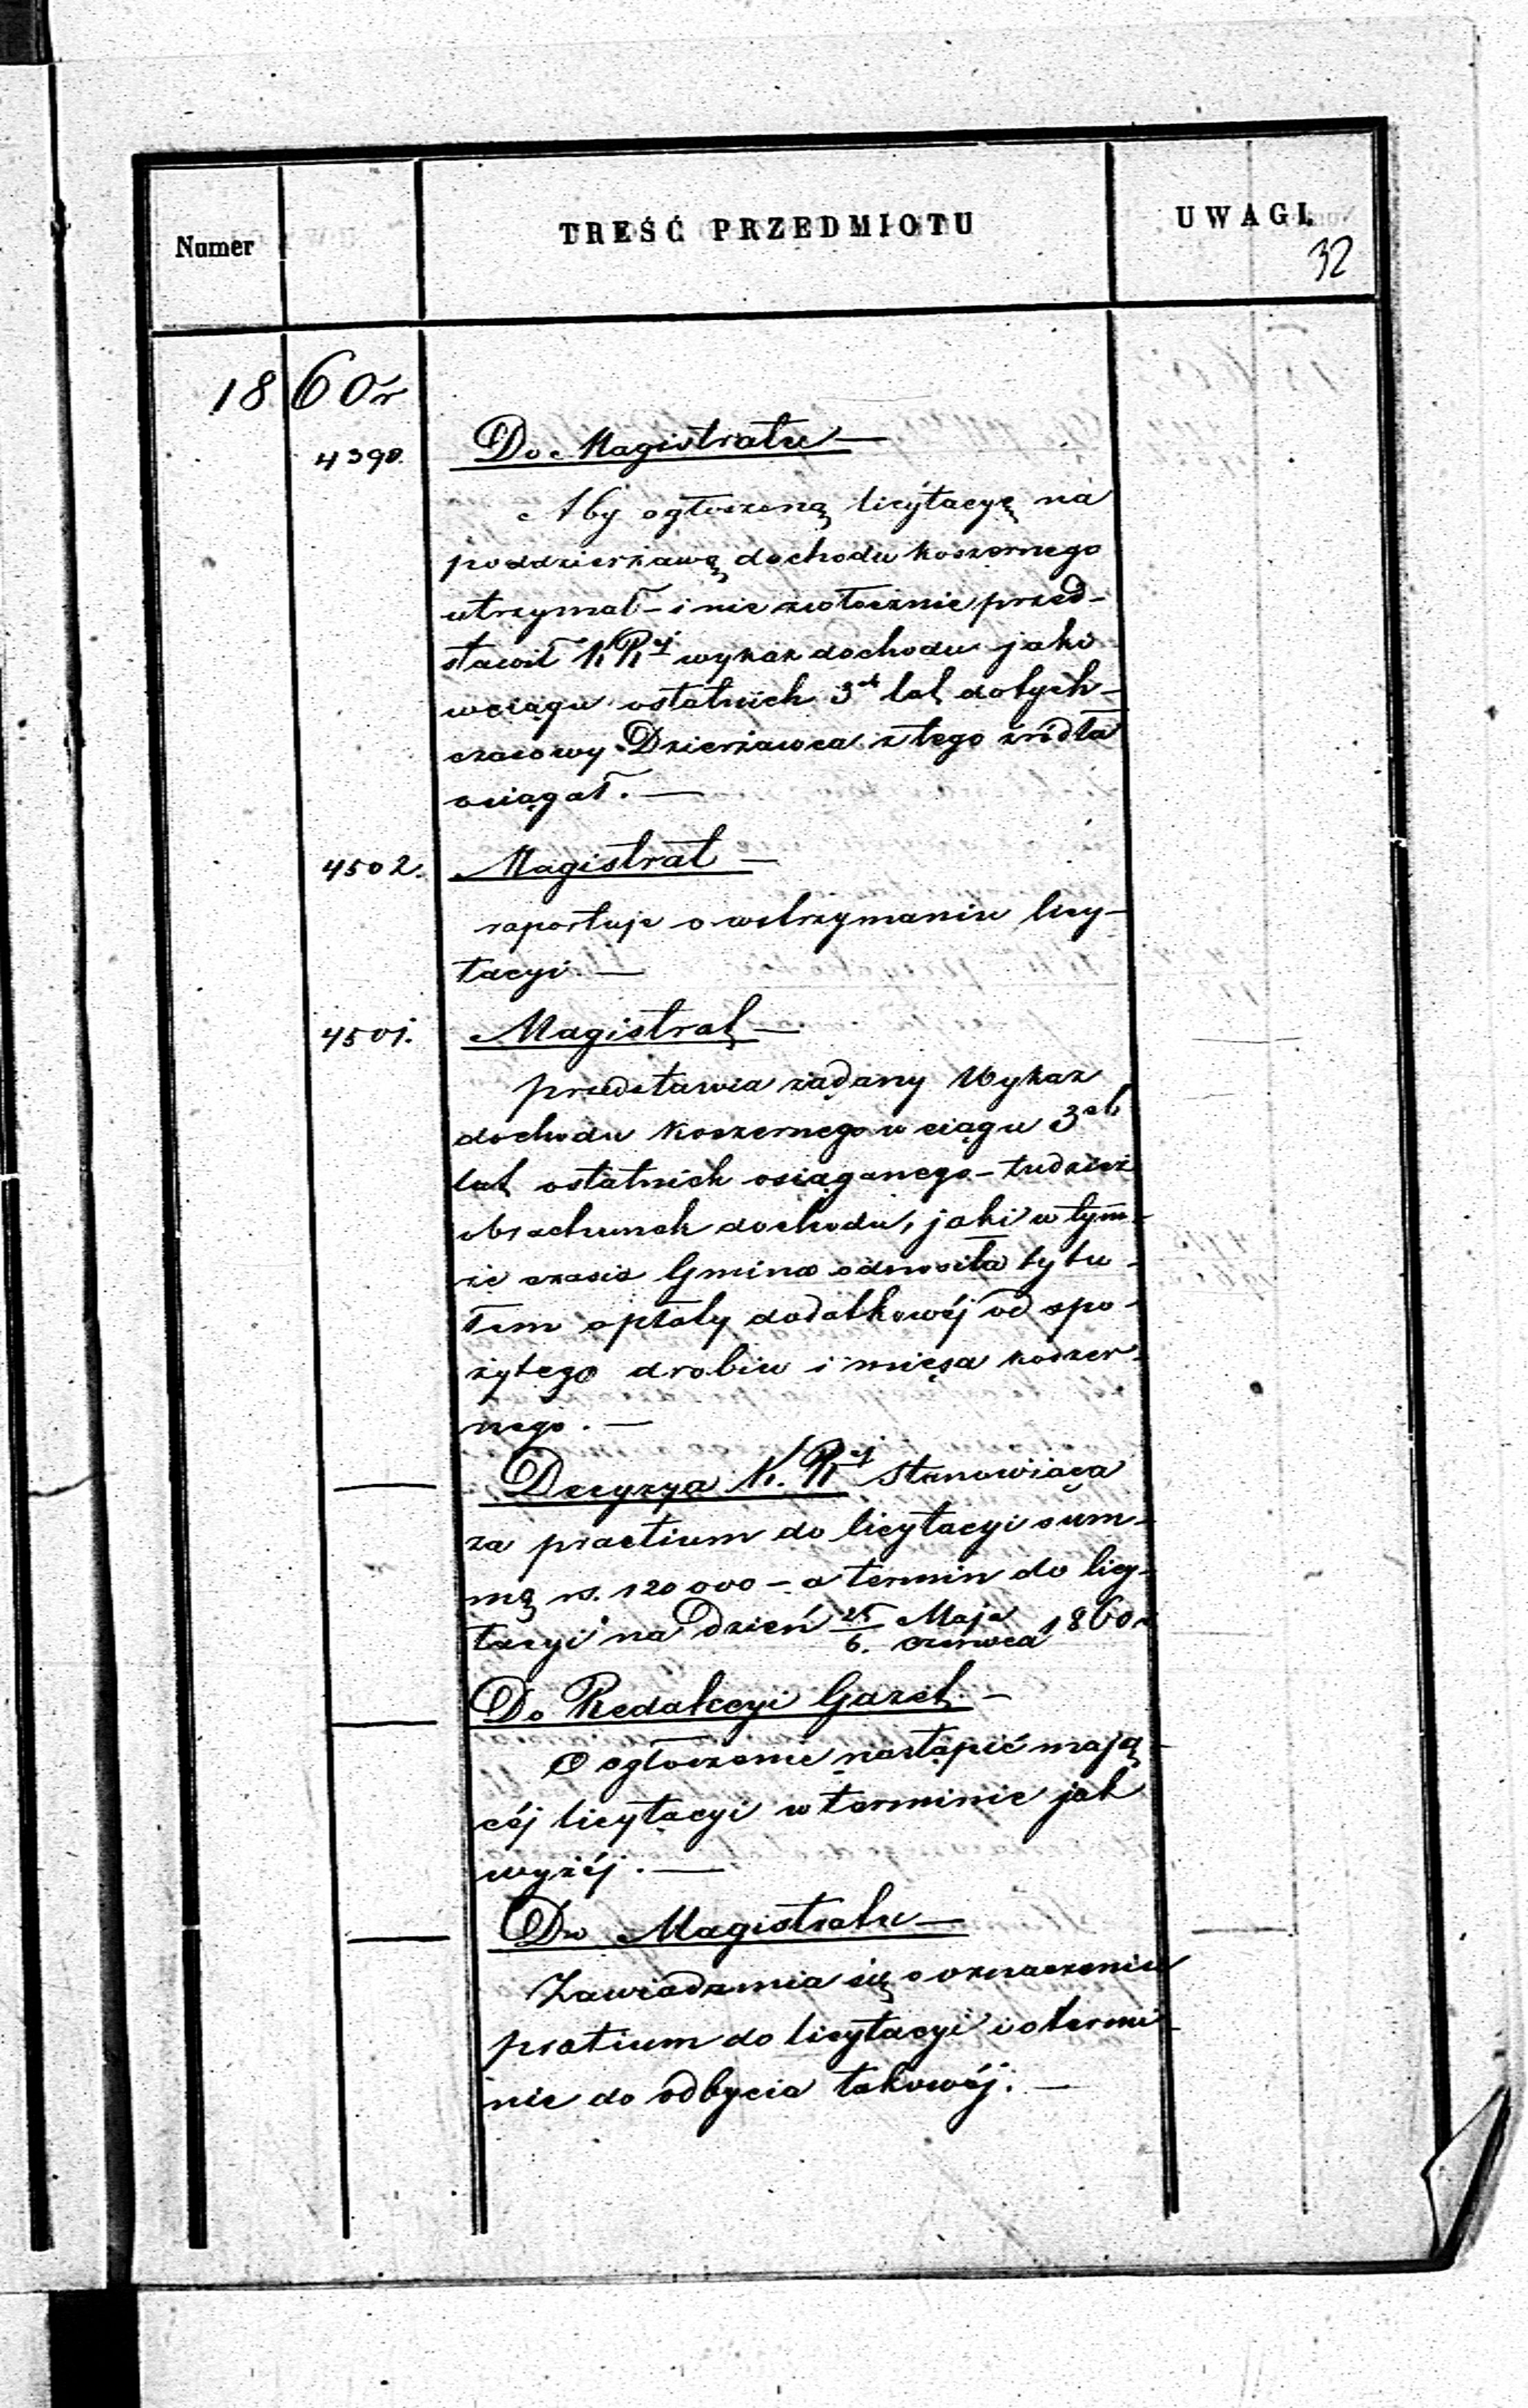 Numer
TREŚĆ PRZEDMIOTU
UWAGI.
32
1860r
4390.
Do Magistratu —
Aby ogłoszoną licytacyę na
poddzierżawę dochodu koszernego
utrzymał – i nie zwłocznie przed-
stawił KRej wykaz dochodu jaki
wciągu ostatnich 3ch lat dotych-
czasowy Dzierżawca z tego źródła
osiągał. —
4502.
Magistrat —
raportuje o wstrzymaniu licy-
tacyi. —
4501.
Magistrat —
przedstawia żądany Wykaz
dochodu koszernego w ciągu 3ch
lat ostatnich osiąganego – tudzież
obrachunek dochodu, jaki w tym-
że czasie Gmina odnosiła tytu-
łem opłaty dodatkowéj od spo-
żytego drobiu i mięsa koszer-
nego. —
Decyzya K. Rej stanowiąca
za praetium do licytacyi sum-
mę rs. 120000 – a termin do licy-
tacyi na Dzień 25/6. Maja/Czerwca 1860r
Do Redakcyi Gazet. —
O ogłoszenie nastąpić mają-
céj licytacyi w terminie jak
wyżéj. —
Do Magistratu —
Zawiadamia się o oznaczeniu
pratium do licytacyi i o termi-
nie do odbycia takowéj. —